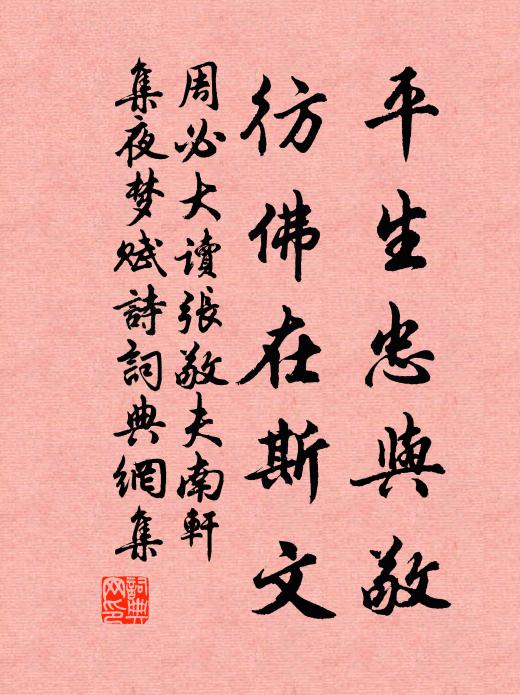 平生忠與敬
彷佛在斯文
周必大讀張敬夫南軒
集夜梦赋詩詞典網集
詞典網印